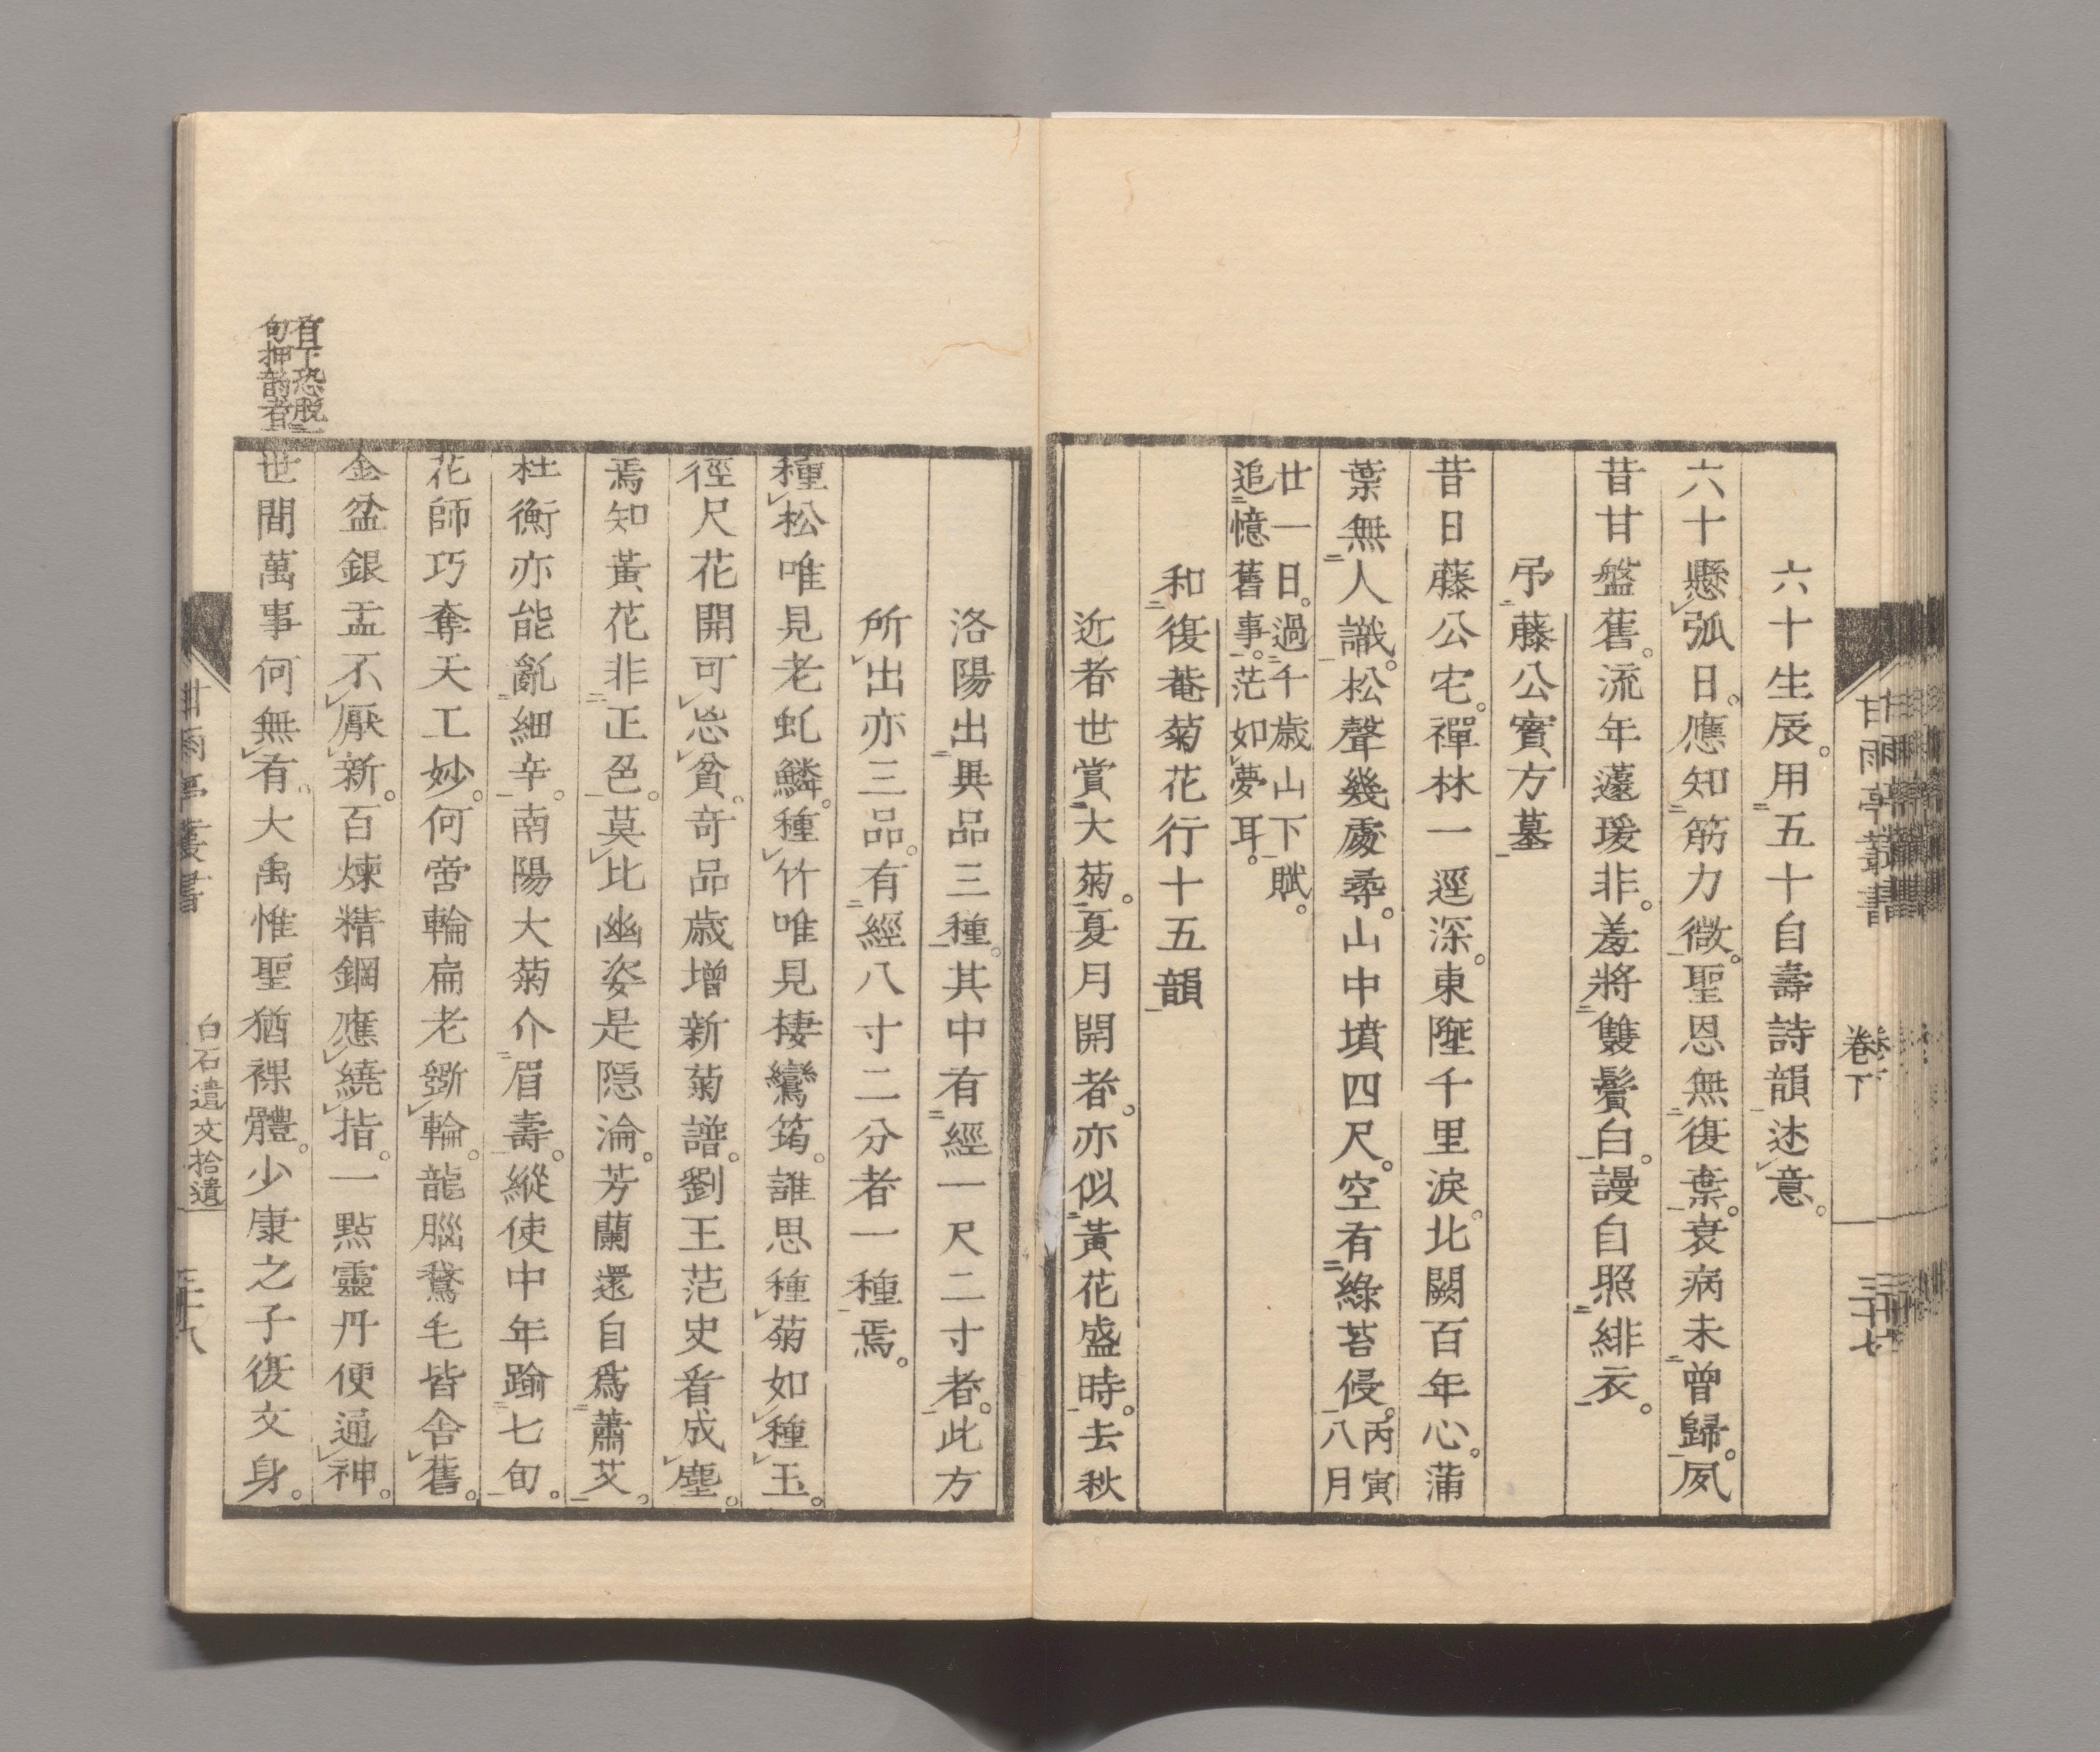 六十生辰。用五十自壽詩韻述意。
六十懸弧日。應知筋力微。聖恩無復棄。衰病未曾歸。夙
昔甘盤舊。流年蘧瑗非。羞將雙鬢白。謾自照緋衣。
弔藤公實方墓
昔日藤公宅。禪林一逕深。東陲千里淚。北闕百年心。蒲
葉無人識。松聲幾處尋。山中墳四尺。空有綠苔侵。丙寅八月
廿一日。過千歲山下賦。
追憶舊事。茫如夢耳。
和復菴菊花行十五韻
近者世賞大菊。夏月開者。亦似黃花盛時。去秋
甘雨亭叢書
卷下
三十七
洛陽出異品三種。其中有經一尺二寸者。此方
所出亦三品。有經八寸二分者一種焉。
種松唯見老虬鱗。種竹唯見棲鸞筠。誰思種菊如種玉。
徑尺花開可忘貧。奇品歲增新菊譜。劉王范史看成塵。
焉知黃花非正色。莫比幽姿是隱淪。芳蘭還自爲蕭艾。
杜衡亦能亂細辛。南陽大菊介眉壽。縱使中年踰七旬。
花師巧奪天工妙。何啻輪扁老斲輪。龍腦鵞毛皆舍舊。
金盆銀盂不厭新。百煉精鋼應繞指。一點靈丹便通神。
世間萬事何無有。大禹惟聖猶裸體。少康之子復文身。
下恐脫一
句押韵者
甘雨亭叢書
白石遺文拾遺
三十八